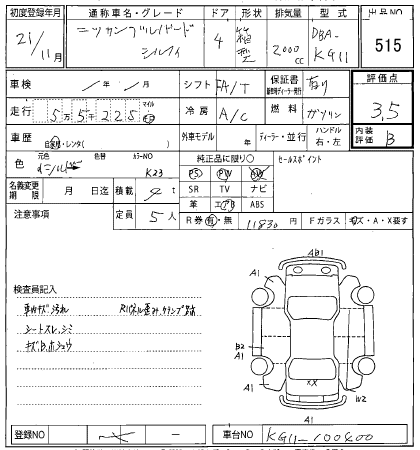 初度登録年月 通称車名・グレード ドア 形状 排気量 型式 出品NO
21/11月 ニッサンブルーバード シルフィ 4 箱型 2000cc DBA-KG11 515
車検 / 年 / 月 シフト FA/T 保証書 有り 評価点
走行 5万5千225 マイル km 冷房 A/C 燃料 ガソリン 3,5
車歴 自家用・レンタ( ) 外車モデル 年 ディーラー・並行 ハンドル 右・左 内装評価 B
色 元色 色替 カラーNO K23 純正品に限り○ セールスポイント
PS PW AW
名義変更期限 月 日迄 積載 t SR TV ナビ
革 エアB ABS
注意事項 定員 5人 R券 有・無 11830円 Fガラス キズ・A・X要す
検査員記入
車内キズ汚れ
シートスレ、シミ
キズ、B、ホシュウ
AB1
A1 A1
B2
A1 A1
XX
W2
A1
登録NO - 車台NO KG11-100800